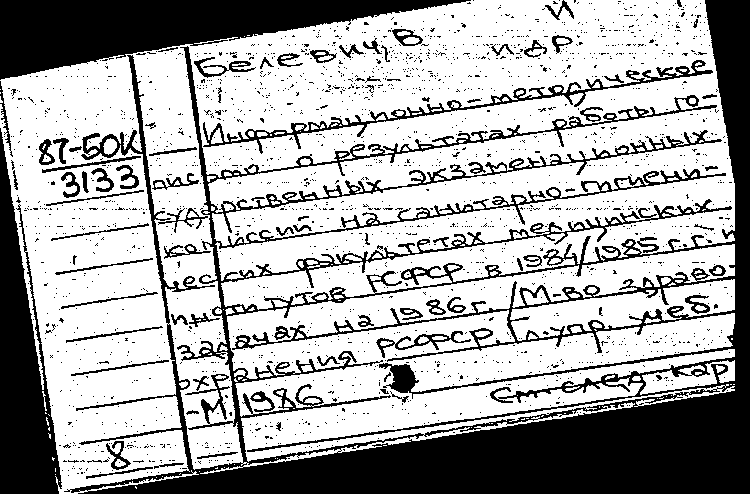 Белевич, В И
и др.
87-БОК
3133
Информационно-методическое
письмо о результатах работы го-
сударственных экзаменационных
комиссий на санитарно-гигиени-
ческих факультетах медицинских
институтов РСФСР в 1984/1985 г.г. и
задачах на 1986 г. / М-во здраво-
охранения РСФСР. Гл. упр. учеб.
-М. 1986
См. след. кар
8